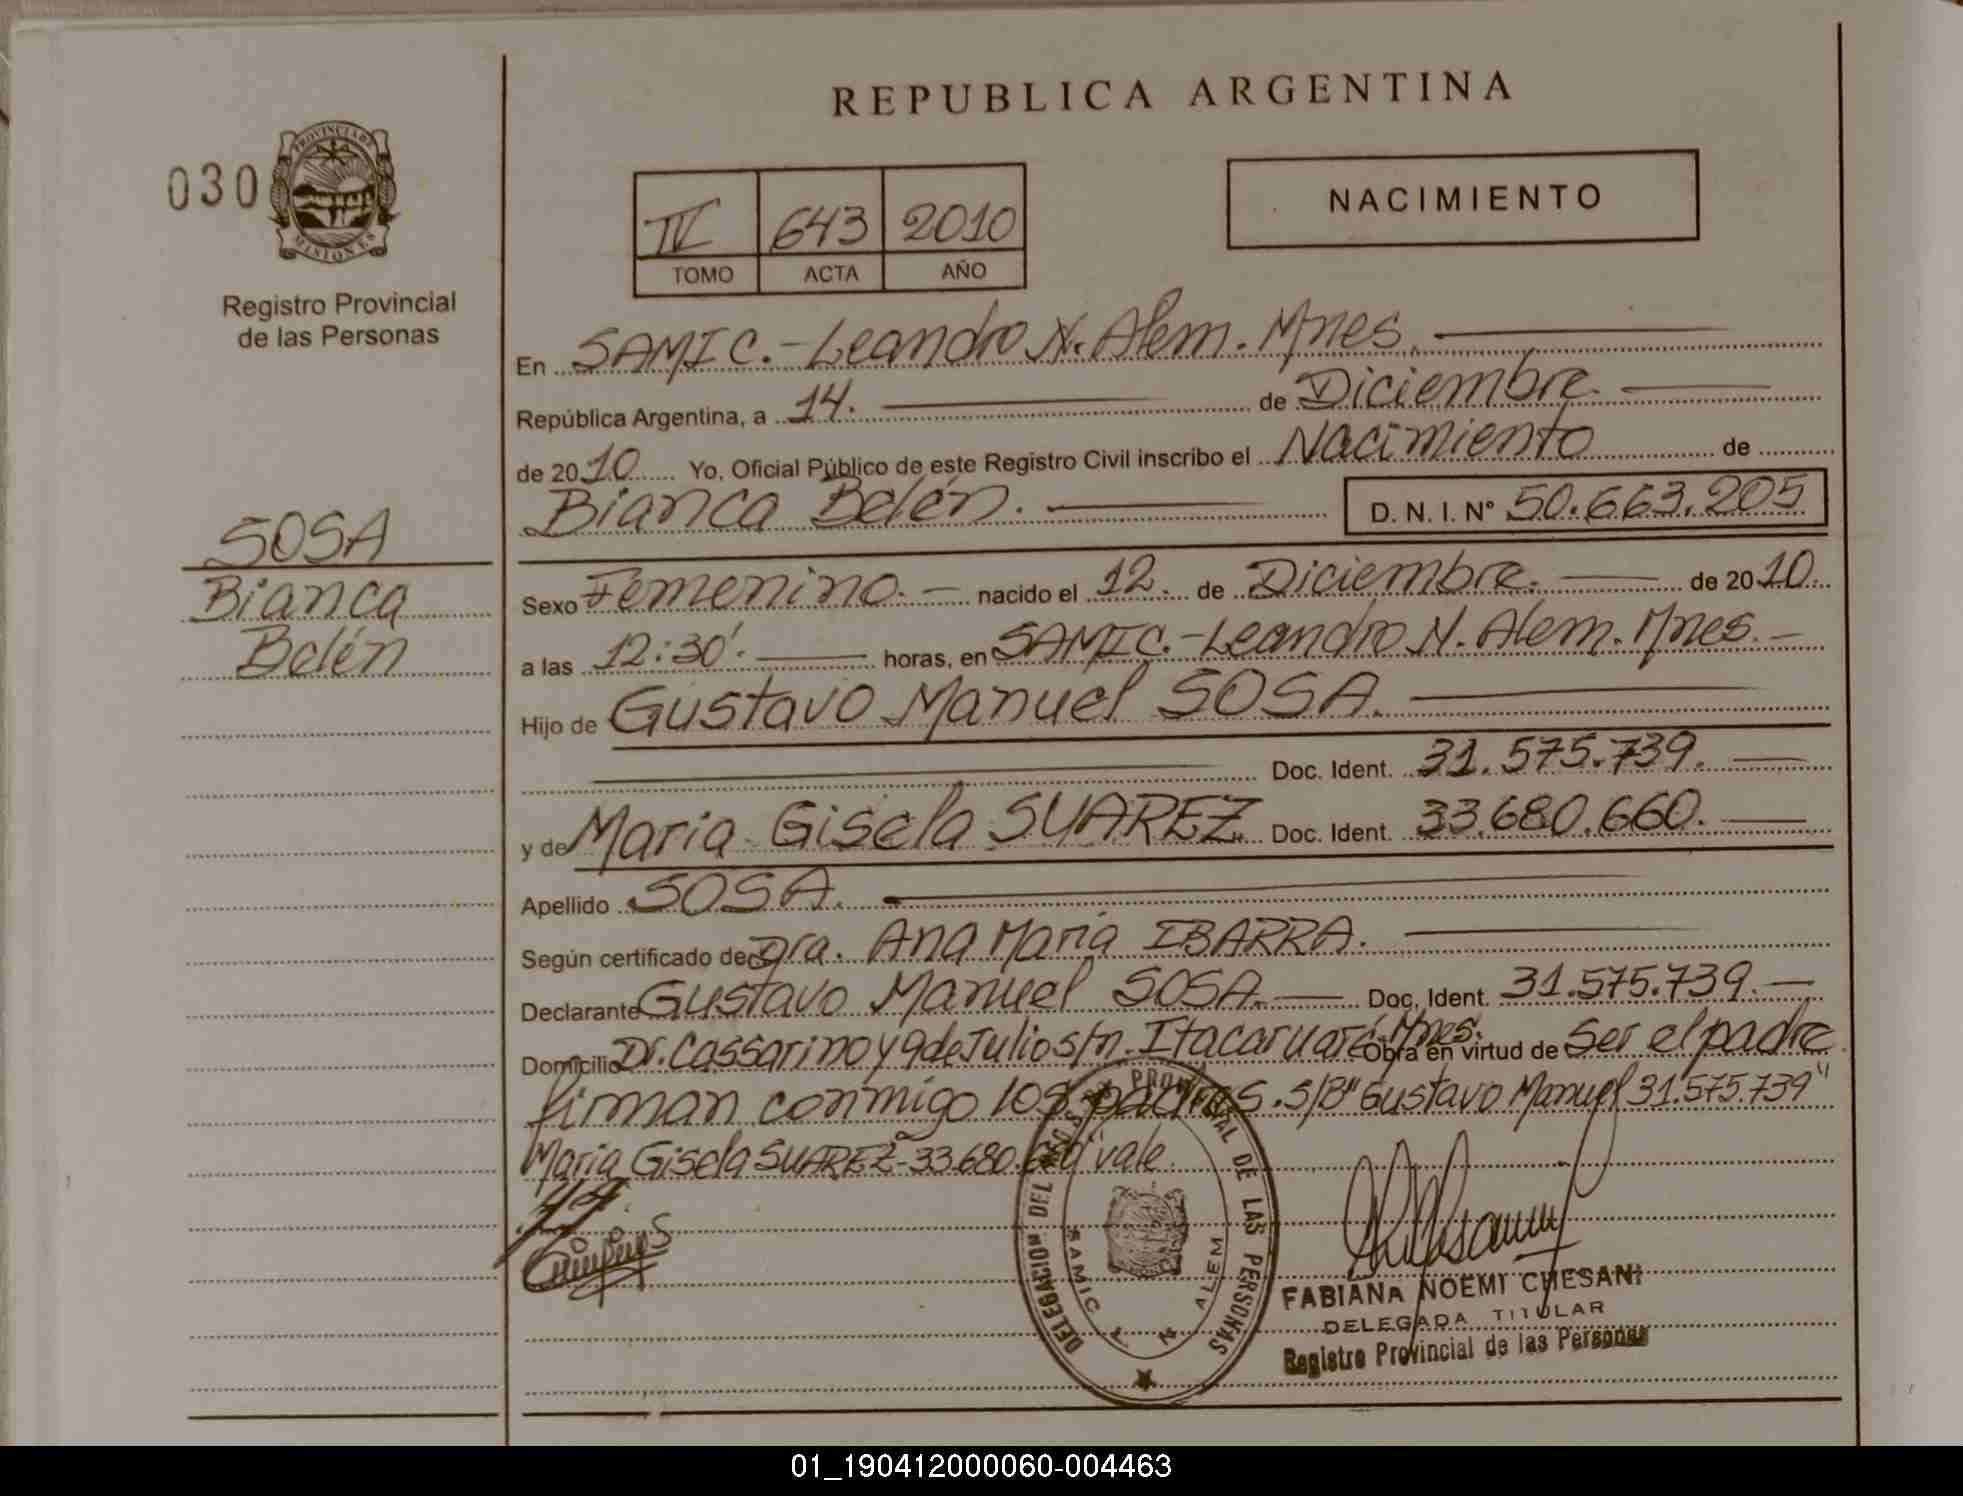 REPUBLICA ARGENTINA
030
PROVINCIA DE
MISIONES
Registro Provincial
de las Personas
IV 643 2010
TOMO ACTA AÑO
NACIMIENTO
SOSA
Bianca
Belén
En SAMIC.-Leandro N. Alem. Mnes.
República Argentina, a 14. de Diciembre.
de 2010 Yo, Oficial Público de este Registro Civil inscribo el Nacimiento de
Bianca Belén. D. N. I. Nº 50.663.205
Sexo Femenino.- nacido el 12. de Diciembre. de 2010.
a las 12:30'. horas, en SAMIC.-Leandro N. Alem. Mnes.-
Hijo de Gustavo Manuel SOSA.
Doc. Ident. 31.575.739.
y de Maria Gisela SUAREZ. Doc. Ident. 33.680.660.
Apellido SOSA.
Según certificado de Dra. Ana Maria IBARRA.
Declarante Gustavo Manuel SOSA. Doc. Ident. 31.575.739.-
Domicilio Dr. Cassarino y 9 de Julio s/n. Itacaruaré Mnes. Obra en virtud de Ser el padre
firman conmigo los padres. S/B "Gustavo Manuel 31.575.739"
Maria Gisela SUAREZ-33.680.660" vale
DELEGACION DEL REGISTRO PROVINCIAL DE LAS PERSONAS
SAMIC L N ALEM
FABIANA NOEMI CHESANI
DELEGADA TITULAR
Registro Provincial de las Personas
01_190412000060-004463